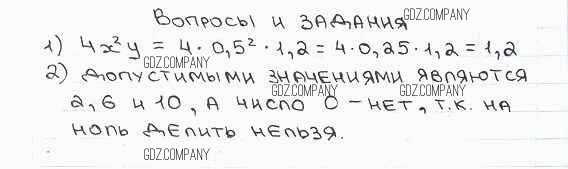 Вопросы и задания
GDZ.COMPANY
1) 4x²y = 4 · 0,5² · 1,2 = 4 · 0,25 · 1,2 = 1,2
GDZ.COMPANY
2) Допустимыми значениями являются
GDZ.COMPANY GDZ.COMPANY
2, 6 и 10, а число 0 – нет, т.к. на
ноль делить нельзя.
GDZ.COMPANY